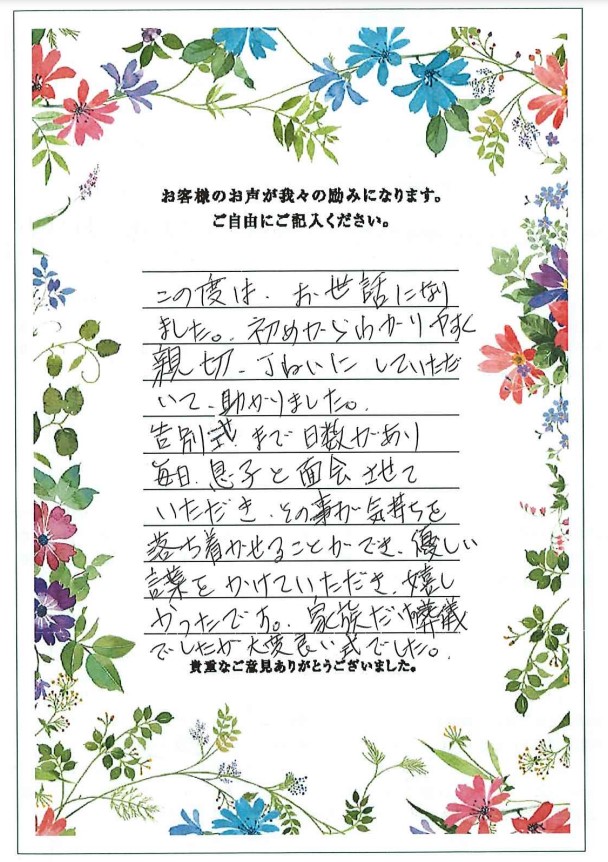 お客様のお声が我々の励みになります。
ご自由にご記入ください。
この度は、お世話になり
ました。初めからわかりやすく
親切、丁ねいにしていただ
いて、助かりました。
告別式まで日数があり
毎日、息子と面会させて
いただき、その事が気持ちを
落ち着かせることができ、優しい
言葉をかけていただき、嬉し
かったです。家族だけ葬儀
でしたが大変良い式でした。
貴重なご意見ありがとうございました。